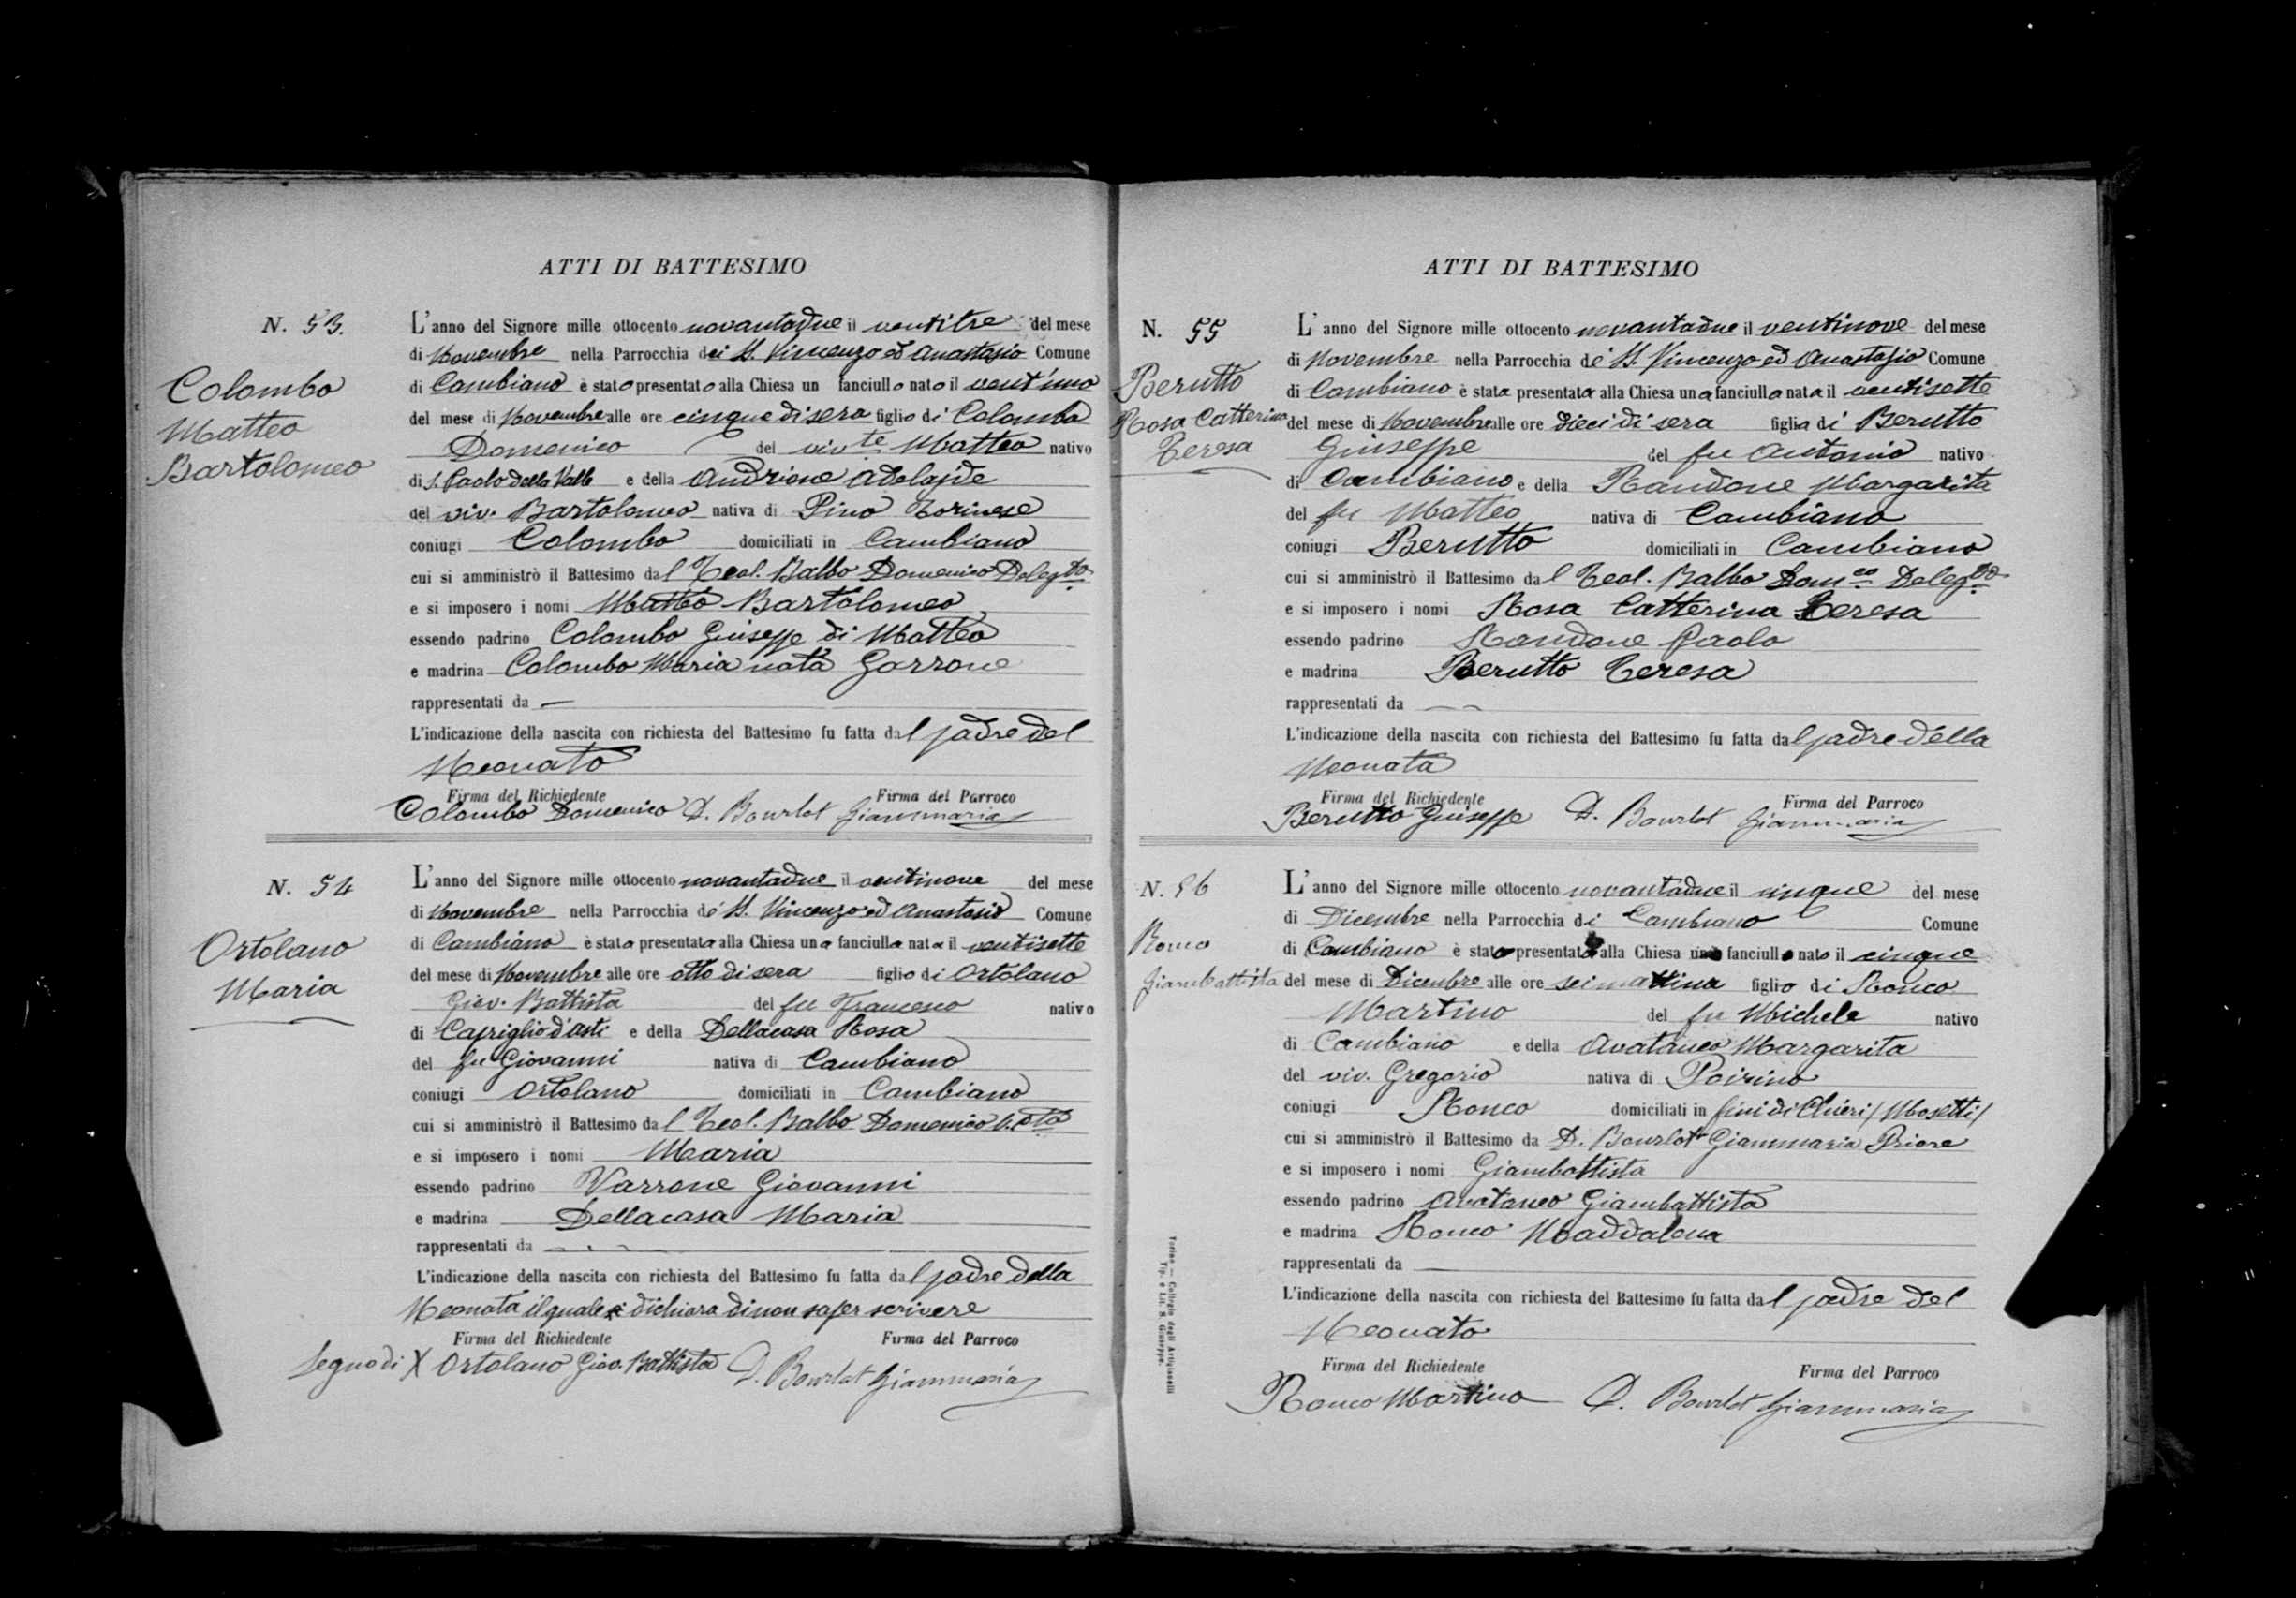 ATTI DI BATTESIMO
N. 53.
Colombo
Matteo
Bartolomeo
L'anno del Signore mille ottocento novantadue il ventitre del mese
di Novembre nella Parrocchia dei SS. Vincenzo ed Anastasio Comune
di Cambiano è stato presentato alla Chiesa un fanciullo nato il vent'uno
del mese di Novembre alle ore cinque di sera figlio di Colombo
Domenico del viv.te Matteo nativo
di S. Paolo della Valle e della Andrione Adelajde
del viv. Bartolomeo nativa di Pino Torinese
coniugi Colombo domiciliati in Cambiano
cui si amministrò il Battesimo dal Teol. Balbo Domenico Deleg.to
e si imposero i nomi Matteo Bartolomeo
essendo padrino Colombo Giuseppe di Matteo
e madrina Colombo Maria nata Garrone
rappresentati da —
L'indicazione della nascita con richiesta del Battesimo fu fatta dal padre del
Neonato
Firma del Richiedente Firma del Parroco
Colombo Domenico D. Bourlot Giammaria
N. 54
Ortolano
Maria
L'anno del Signore mille ottocento novantadue il ventinove del mese
di Novembre nella Parrocchia de' SS. Vincenzo ed Anastasio Comune
di Cambiano è stata presentata alla Chiesa una fanciulla nata il ventisette
del mese di Novembre alle ore otto di sera figlio di Ortolano
Giov. Battista del fu Francesco nativo
di Capriglio d'Asti e della Dellacasa Rosa
del fu Giovanni nativa di Cambiano
coniugi Ortolano domiciliati in Cambiano
cui si amministrò il Battesimo dal Teol. Balbo Domenico
e si imposero i nomi Maria
essendo padrino Varrone Giovanni
e madrina Dellacasa Maria
rappresentati da
L'indicazione della nascita con richiesta del Battesimo fu fatta dal padre della
Neonata il quale si dichiara di non saper scrivere
Firma del Richiedente Firma del Parroco
Segno di X Ortolano Giov. Battista D. Bourlot Giammaria
ATTI DI BATTESIMO
N. 55
Berutto
Rosa Catterina
Teresa
L'anno del Signore mille ottocento novantadue il ventinove del mese
di Novembre nella Parrocchia de' SS. Vincenzo ed Anastasio Comune
di Cambiano è stata presentata alla Chiesa una fanciulla nata il ventisette
del mese di Novembre alle ore dieci di sera figlia di Berutto
Giuseppe del fu Antonio nativo
di Cambiano e della Randone Margarita
del fu Matteo nativa di Cambiano
coniugi Berutto domiciliati in Cambiano
cui si amministrò il Battesimo dal Teol. Balbo Dom.co Deleg.to
e si imposero i nomi Rosa Catterina Teresa
essendo padrino Randone Paolo
e madrina Berutto Teresa
rappresentati da
L'indicazione della nascita con richiesta del Battesimo fu fatta dal padre della
Neonata
Firma del Richiedente Firma del Parroco
Berutto Giuseppe D. Bourlot Giammaria
N. 56
Ronco
Giambattista
L'anno del Signore mille ottocento novantadue il cinque del mese
di Dicembre nella Parrocchia di Cambiano Comune
di Cambiano è stato presentato alla Chiesa un fanciullo nato il cinque
del mese di Dicembre alle ore sei mattina figlio di Ronco
Martino del fu Michele nativo
di Cambiano e della Avataneo Margarita
del viv. Gregorio nativa di Poirino
coniugi Ronco domiciliati in fini di Chieri / Mosetti /
cui si amministrò il Battesimo da D. Bourlot Giammaria Priore
e si imposero i nomi Giambattista
essendo padrino Avataneo Giambattista
e madrina Ronco Maddalena
rappresentati da
L'indicazione della nascita con richiesta del Battesimo fu fatta dal padre del
Neonato
Firma del Richiedente Firma del Parroco
Ronco Martino D. Bourlot Giammaria
Torino — Collegio degli Artigianelli
Tip. e Lit. S. Giuseppe.